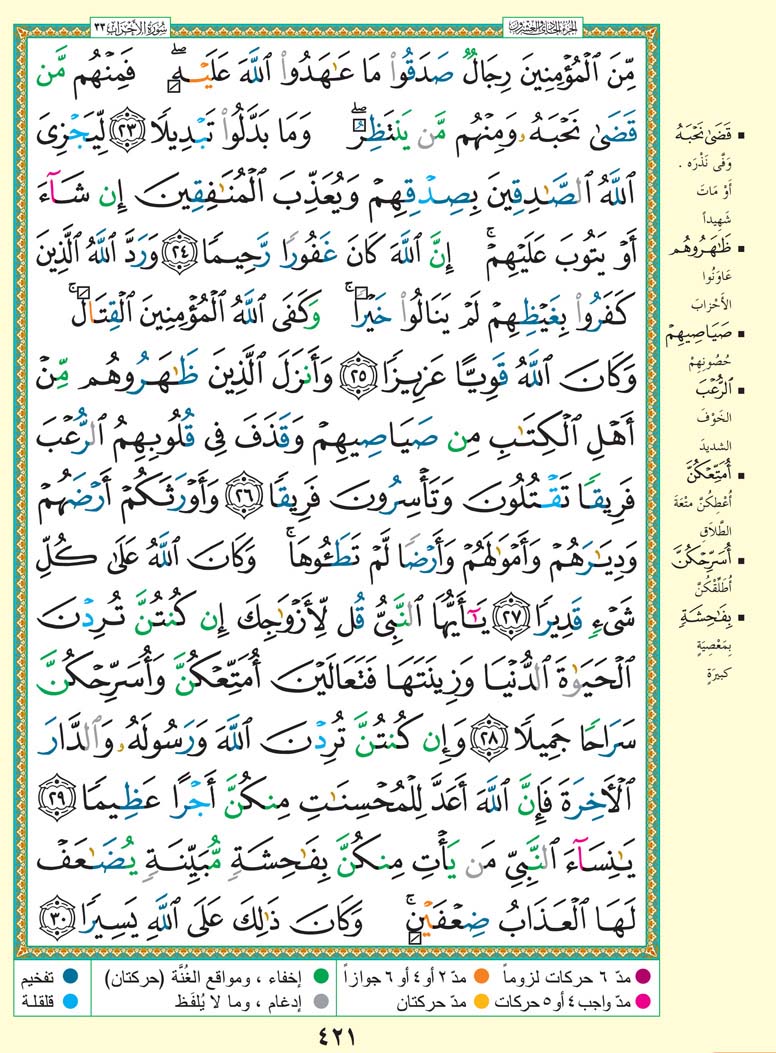 الجزء الحادي والعشرون
سورة الأحزاب ٣٣
مِّنَ ٱلْمُؤْمِنِينَ رِجَالٌ صَدَقُوا۟ مَا عَـٰهَدُوا۟ ٱللَّهَ عَلَيْهِ ۖ فَمِنْهُم مَّن
قَضَىٰ نَحْبَهُۥ وَمِنْهُم مَّن يَنتَظِرُ ۖ وَمَا بَدَّلُوا۟ تَبْدِيلًا ٢٣ لِّيَجْزِىَ
ٱللَّهُ ٱلصَّـٰدِقِينَ بِصِدْقِهِمْ وَيُعَذِّبَ ٱلْمُنَـٰفِقِينَ إِن شَآءَ
أَوْ يَتُوبَ عَلَيْهِمْ ۚ إِنَّ ٱللَّهَ كَانَ غَفُورًا رَّحِيمًا ٢٤ وَرَدَّ ٱللَّهُ ٱلَّذِينَ
كَفَرُوا۟ بِغَيْظِهِمْ لَمْ يَنَالُوا۟ خَيْرًا ۚ وَكَفَى ٱللَّهُ ٱلْمُؤْمِنِينَ ٱلْقِتَالَ ۚ
وَكَانَ ٱللَّهُ قَوِيًّا عَزِيزًا ٢٥ وَأَنزَلَ ٱلَّذِينَ ظَـٰهَرُوهُم مِّنْ
أَهْلِ ٱلْكِتَـٰبِ مِن صَيَاصِيهِمْ وَقَذَفَ فِى قُلُوبِهِمُ ٱلرُّعْبَ
فَرِيقًا تَقْتُلُونَ وَتَأْسِرُونَ فَرِيقًا ٢٦ وَأَوْرَثَكُمْ أَرْضَهُمْ
وَدِيَـٰرَهُمْ وَأَمْوَٰلَهُمْ وَأَرْضًا لَّمْ تَطَـُٔوهَا ۚ وَكَانَ ٱللَّهُ عَلَىٰ كُلِّ
شَىْءٍ قَدِيرًا ٢٧ يَـٰٓأَيُّهَا ٱلنَّبِىُّ قُل لِّأَزْوَٰجِكَ إِن كُنتُنَّ تُرِدْنَ
ٱلْحَيَوٰةَ ٱلدُّنْيَا وَزِينَتَهَا فَتَعَالَيْنَ أُمَتِّعْكُنَّ وَأُسَرِّحْكُنَّ
سَرَاحًا جَمِيلًا ٢٨ وَإِن كُنتُنَّ تُرِدْنَ ٱللَّهَ وَرَسُولَهُۥ وَٱلدَّارَ
ٱلْـَٔاخِرَةَ فَإِنَّ ٱللَّهَ أَعَدَّ لِلْمُحْسِنَـٰتِ مِنكُنَّ أَجْرًا عَظِيمًا ٢٩
يَـٰنِسَآءَ ٱلنَّبِىِّ مَن يَأْتِ مِنكُنَّ بِفَـٰحِشَةٍ مُّبَيِّنَةٍ يُضَـٰعَفْ
لَهَا ٱلْعَذَابُ ضِعْفَيْنِ ۚ وَكَانَ ذَٰلِكَ عَلَى ٱللَّهِ يَسِيرًا ٣٠
▪ قَضَىٰ نَحْبَهُ
وَفَّى نَذْرَه .
أَوْ مَاتَ
شَهِيداً
▪ ظَـٰهَرُوهُم
عَاوَنُوا
الأَحْزابَ
▪ صَيَاصِيهِمْ
حُصُونِهِمْ
▪ ٱلرُّعْبَ
الخَوْفَ
الشديدَ
▪ أُمَتِّعْكُنَّ
أُعْطِكُنَّ مُتْعَةَ
الطَّلَاقِ
▪ أُسَرِّحْكُنَّ
أُطَلِّقْكُنَّ
▪ بِفَـٰحِشَةٍ
بِمَعْصِيَةٍ
كَبِيرَةٍ
● مدّ ٦ حركات لزوماً ● مدّ ٢ أو ٤ أو ٦ جوازاً ● إخفاء ، ومواقع الغُنَّة (حركتان) ● تفخيم
● مدّ واجب ٤ أو ٥ حركات ● مدّ حركتان ● إدغام ، وما لا يُلفَظ ● قلقلة
٤٢١